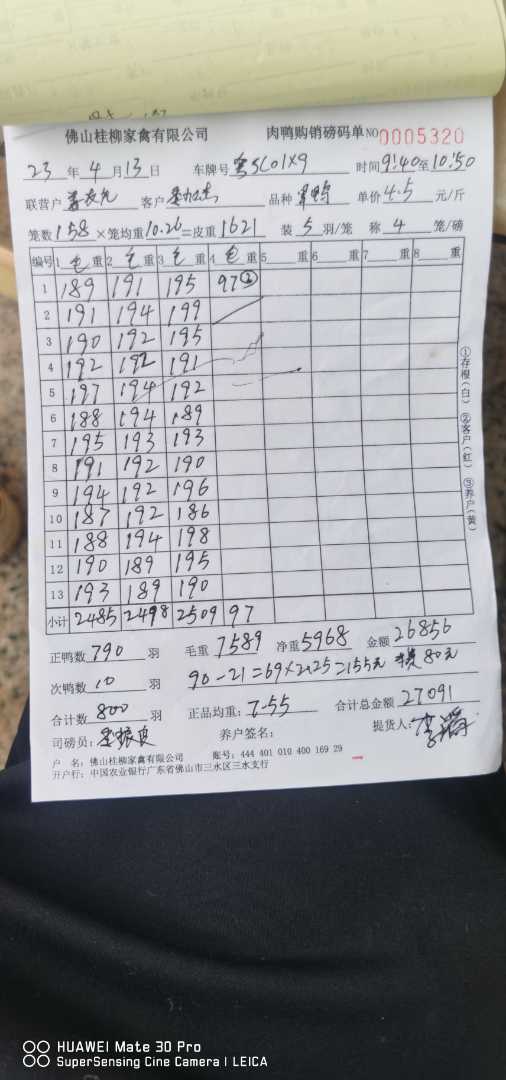 佛山桂柳家禽有限公司 肉鸭购销磅码单 NO 0005320
23 年 4 月 13 日 车牌号 SC01X9 时间 9:40 至 10:50
联营户 客户 品种 单价 4.5 元/斤
笼数 158 ×笼均重 10.26 =皮重 1621 装 5 羽/笼 称 4 笼/磅
编号 1 毛 重 2 毛 重 3 毛 重 4 毛 重 5 重 6 重 7 重 8 重
1 189 191 195 97②
2 191 194 199
3 190 192 195
4 192 192 191
5 197 194 192
6 188 194 189
7 195 193 193
8 191 192 190
9 194 192 196
10 187 192 186
11 188 194 198
12 190 189 195
13 193 189 190
小计 2485 2498 2509 97
①存根(白) ②客户(红) ③养户(黄)
正鸭数 790 羽 毛重 7589 净重 5968 金额 26856
次鸭数 10 羽 90-21=69×2.25=155元 80元
合计数 800 羽 正品均重: 7.55 合计总金额 27091
司磅员: 养户签名: 提货人:
户 名: 佛山桂柳家禽有限公司 账号: 444 401 010 400 169 29
开户行: 中国农业银行广东省佛山市三水区三水支行
HUAWEI Mate 30 Pro
SuperSensing Cine Camera | LEICA